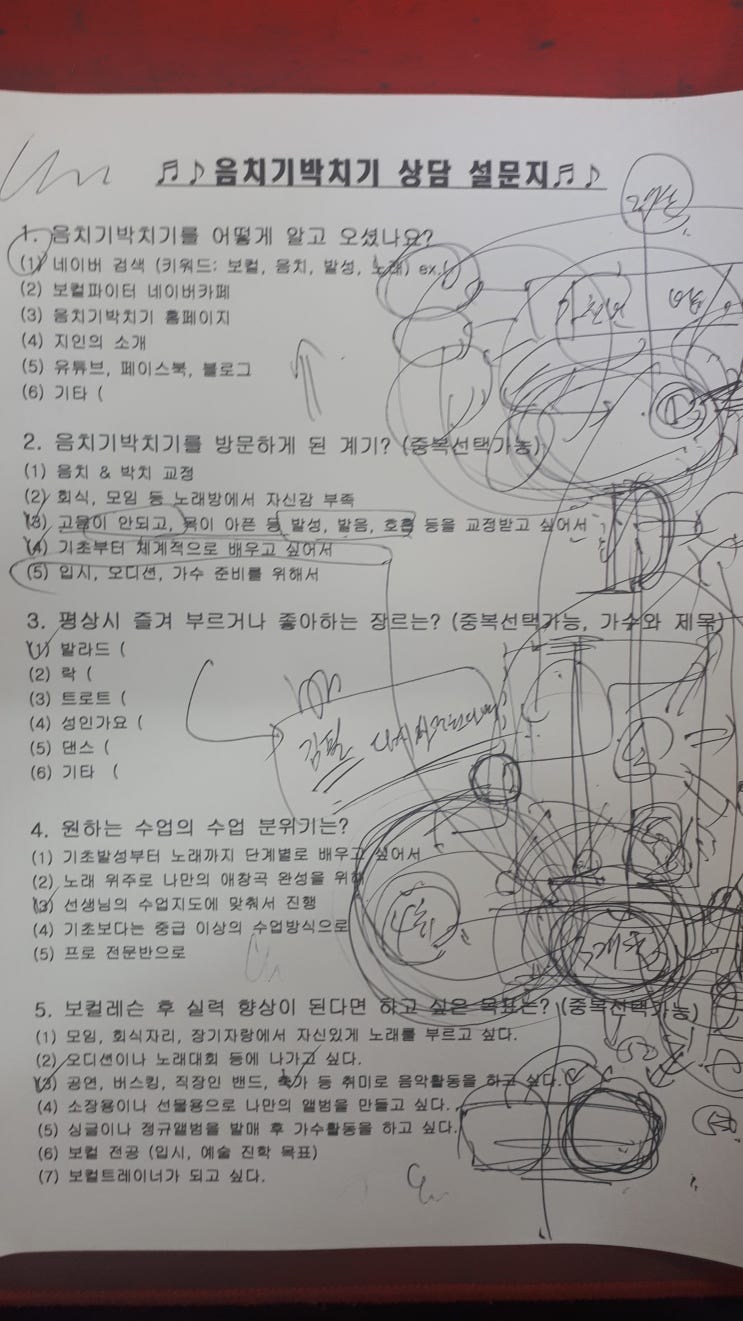 ♬♪음치기박치기 상담 설문지♬♪
1. 음치기박치기를 어떻게 알고 오셨나요?
(1) 네이버 검색 (키워드: 보컬, 음치, 발성, 노래) ex.(
(2) 보컬파이터 네이버카페
(3) 음치기박치기 홈페이지
(4) 지인의 소개
(5) 유튜브, 페이스북, 블로그
(6) 기타 (
2. 음치기박치기를 방문하게 된 계기? (중복선택가능)
(1) 음치 & 박치 교정
(2) 회식, 모임 등 노래방에서 자신감 부족
(3) 고음이 안되고, 목이 아픈 등 발성, 발음, 호흡 등을 교정받고 싶어서
(4) 기초부터 체계적으로 배우고 싶어서
(5) 입시, 오디션, 가수 준비를 위해서
3. 평상시 즐겨 부르거나 좋아하는 장르는? (중복선택가능, 가수와 제목)
(1) 발라드 (
(2) 락 (
(3) 트로트 (
(4) 성인가요 (
(5) 댄스 (
(6) 기타 (
김필
4. 원하는 수업의 수업 분위기는?
(1) 기초발성부터 노래까지 단계별로 배우고 싶어서
(2) 노래 위주로 나만의 애창곡 완성을 위해
(3) 선생님의 수업지도에 맞춰서 진행
(4) 기초보다는 중급 이상의 수업방식으로
(5) 프로 전문반으로
5. 보컬레슨 후 실력 향상이 된다면 하고 싶은 목표는? (중복선택가능)
(1) 모임, 회식자리, 장기자랑에서 자신있게 노래를 부르고 싶다.
(2) 오디션이나 노래대회 등에 나가고 싶다.
(3) 공연, 버스킹, 직장인 밴드, 축가 등 취미로 음악활동을 하고 싶다.
(4) 소장용이나 선물용으로 나만의 앨범을 만들고 싶다.
(5) 싱글이나 정규앨범을 발매 후 가수활동을 하고 싶다.
(6) 보컬 전공 (입시, 예술 진학 목표)
(7) 보컬트레이너가 되고 싶다.